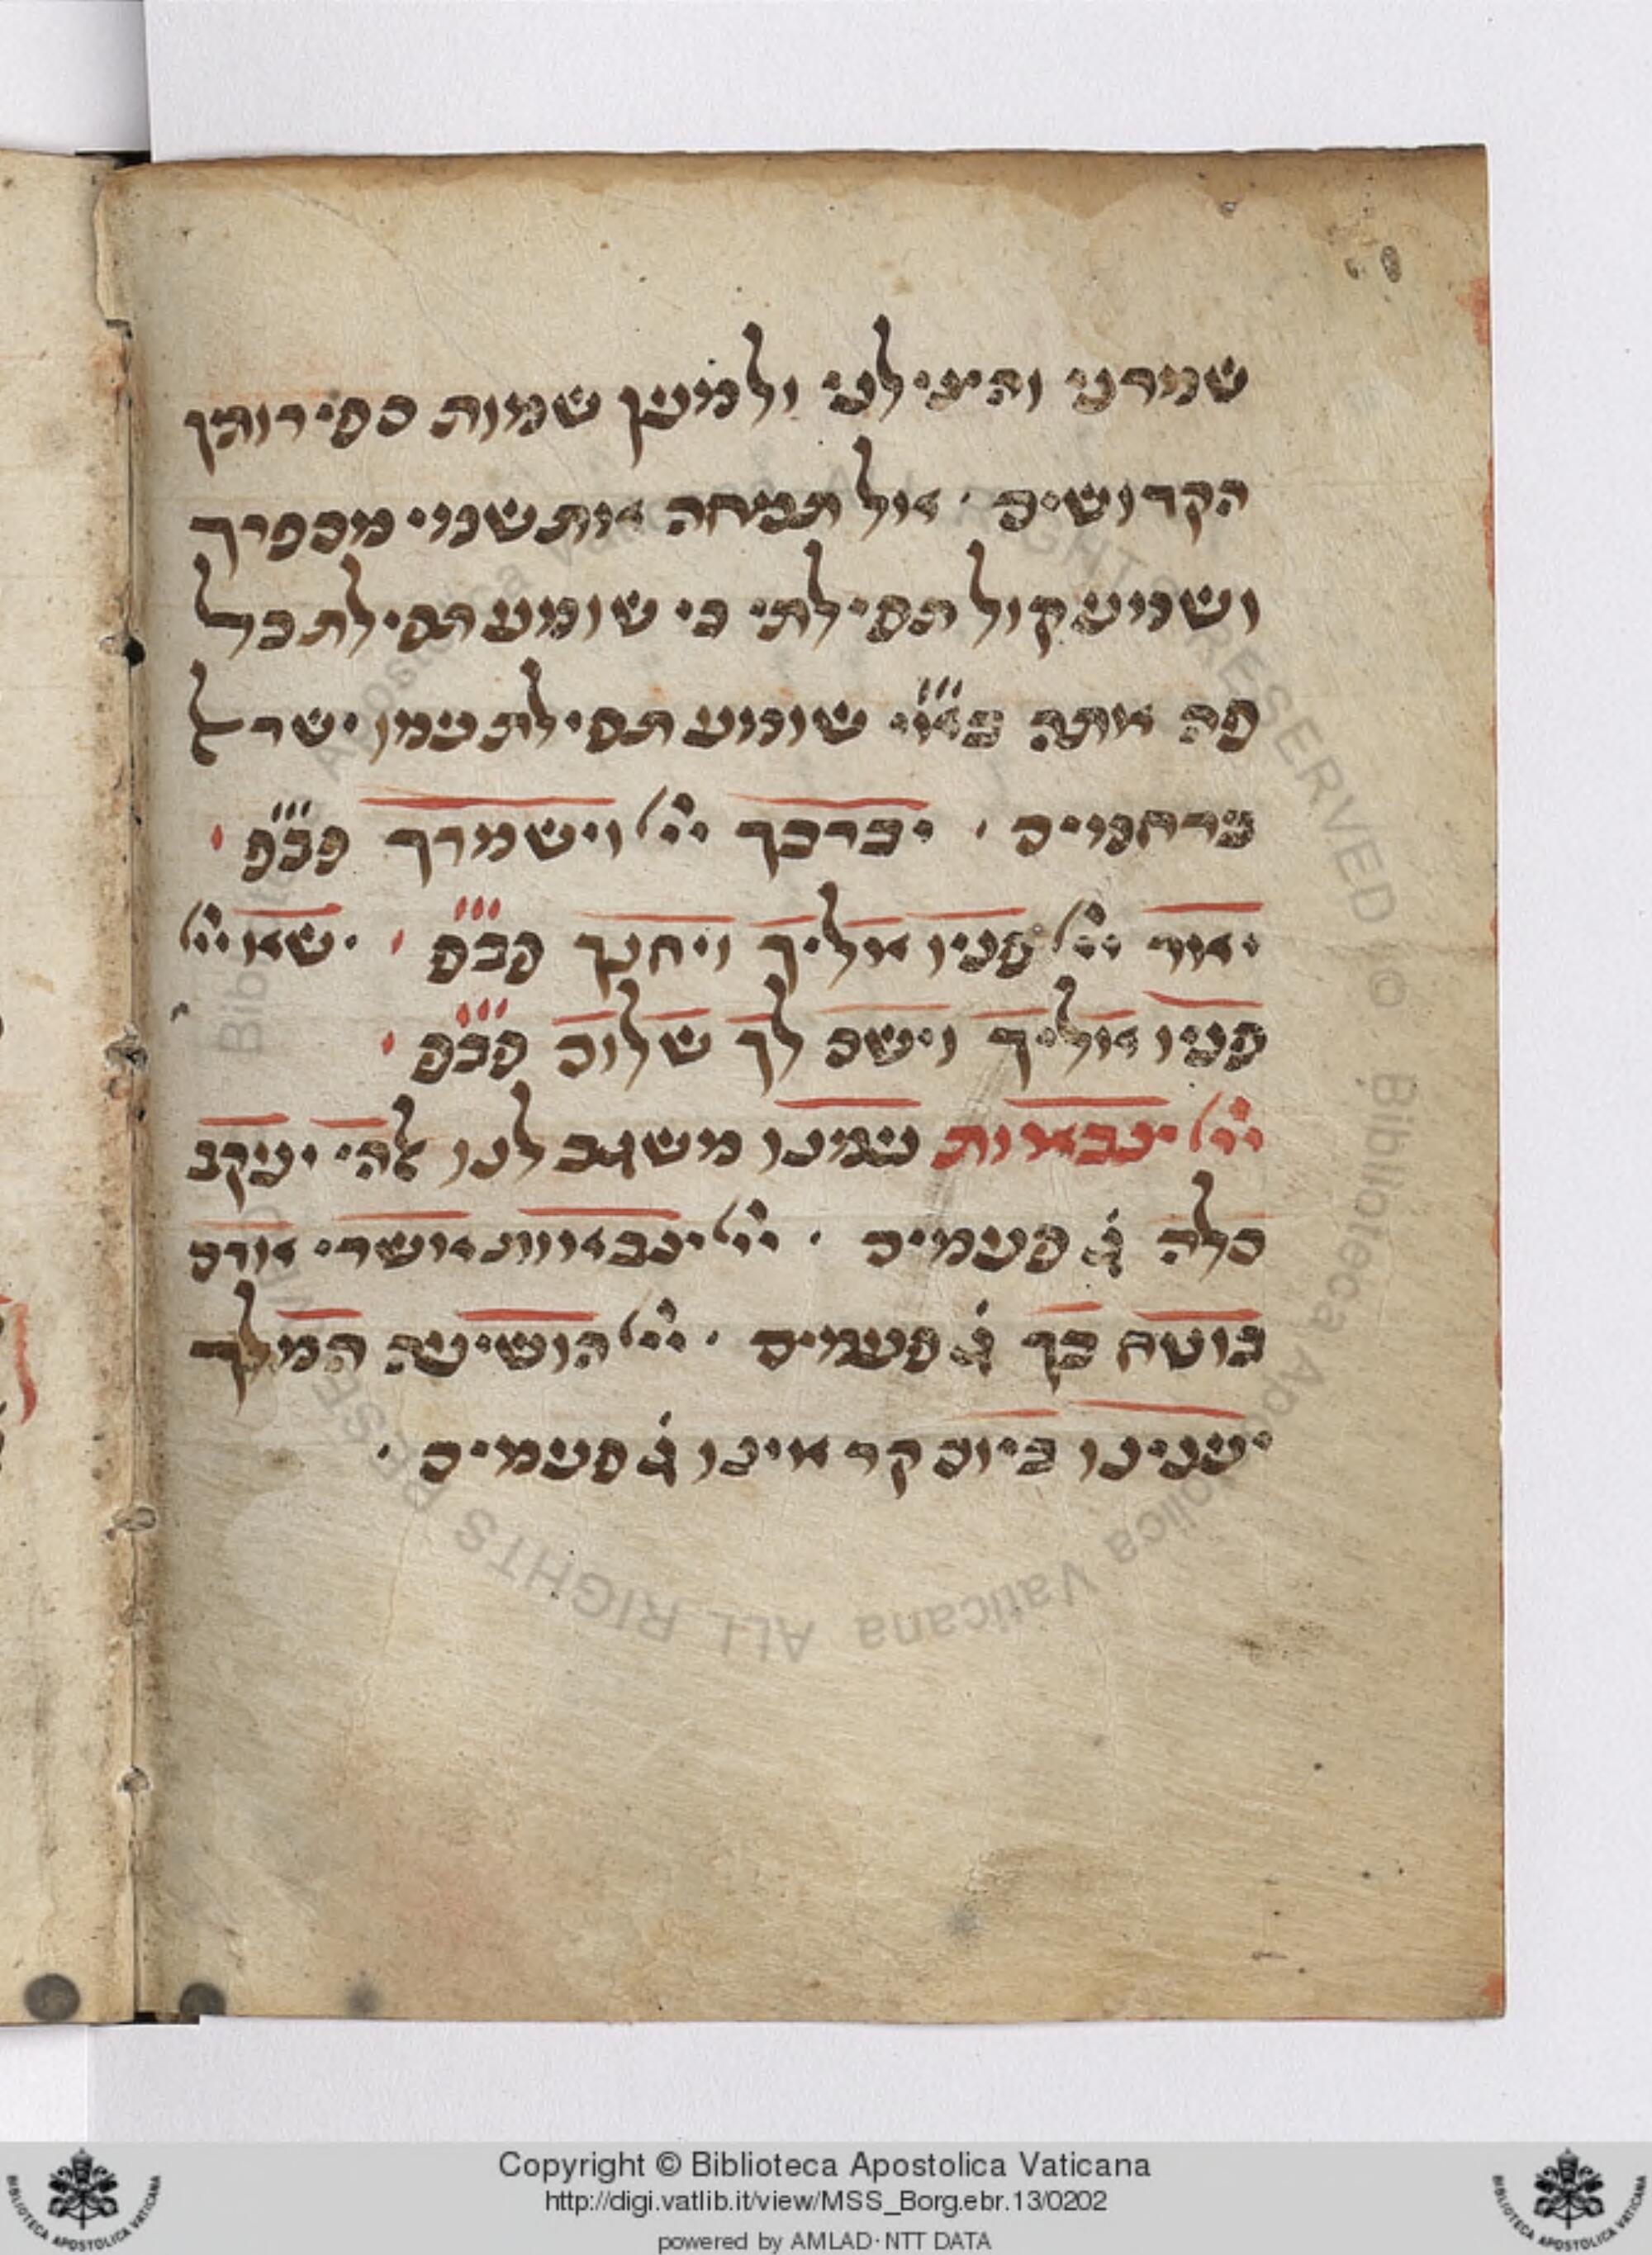 שמרני והצילני ולמען שמות ספירותן
הקדושים · אל תמחה את שמי מספריך
ושמע קול תפילתי כי שומע תפילת כל
פה אתה בא״י שומע תפילת עמו ישרל
ברחמים · יברכך ייי וישמרך פב״פ
יאור ייי פניו אליך ויחנך פב״פ · ישא ייי
פניו אליך וישם לך שלום פב״פ
ייי צבאות עמנו משגב לנו אלהי יעקב
סלה ג̇ פעמים · ייי צבאות אשרי אדם
בוטח בך ג̇ פעמים · ייי הושיעה המלך
יענינו ביום קראינו ג̇ פעמים ·
Copyright © Biblioteca Apostolica Vaticana
http://digi.vatlib.it/view/MSS_Borg.ebr.13/0202
powered by AMLAD·NTT DATA